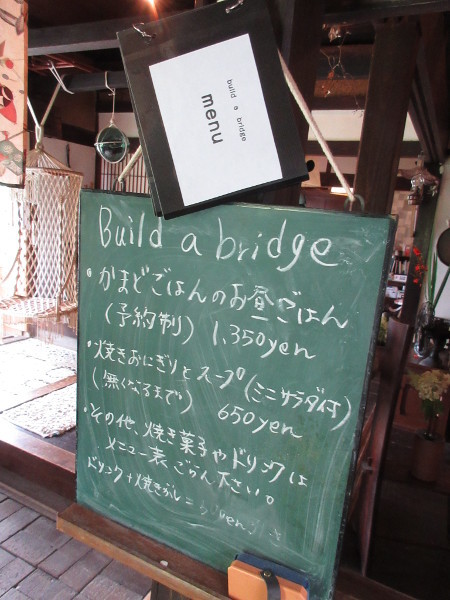 build a bridge
menu
Build a bridge
・かまどごはんのお昼ごはん
(予約制) 1,350yen
・焼きおにぎりとスープ(ミニサラダ付)
(無くなるまで) 650yen
・その他、焼き菓子やドリンクは
メニュー表ごらん下さい。
ドリンク+焼きがし=